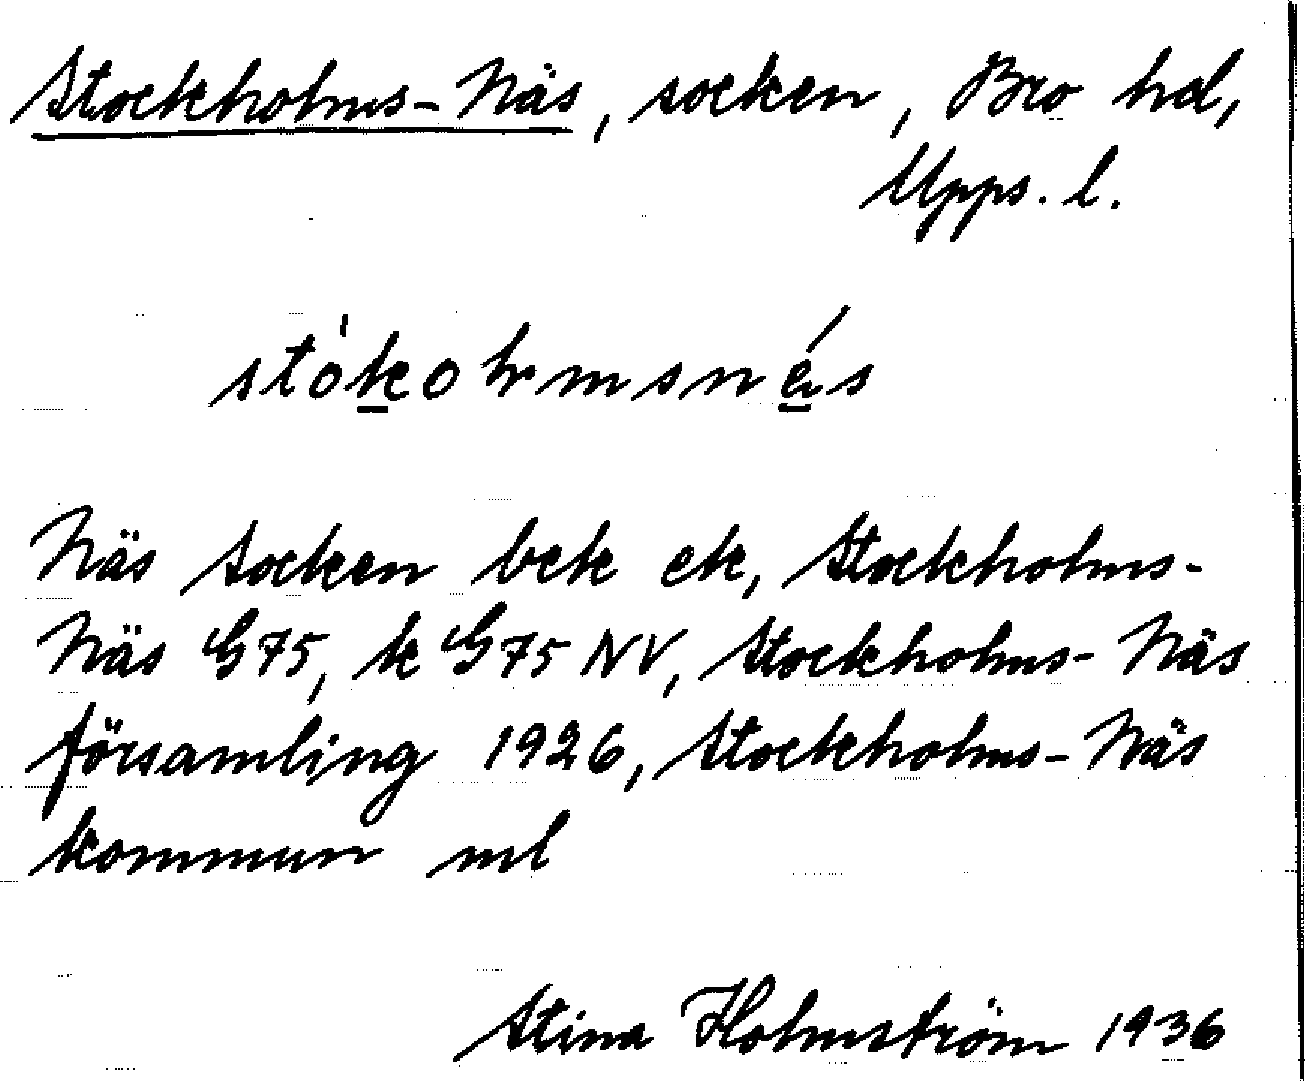 Stockholms-Näs, socken, Bro hd,
Upps. l.
stókohrmsnés
Näs socken bek ek, Stockholms-
Näs G75, k G75 NV, Stockholms-Näs
församling 1926, Stockholms-Näs
kommun ml
Stina Holmström 1936